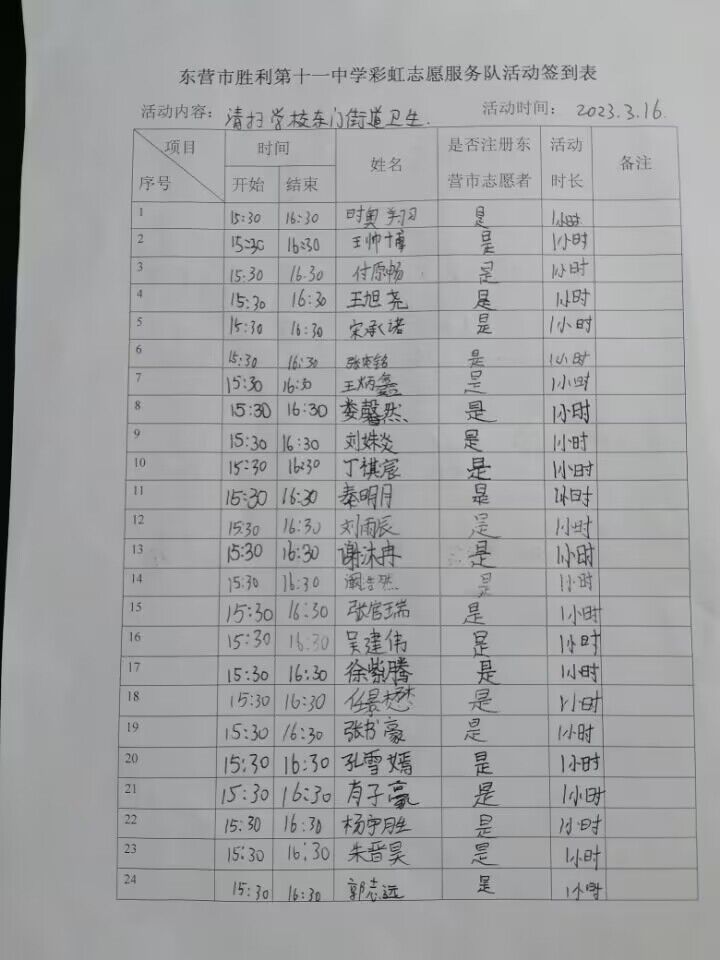 东营市胜利第十一中学彩虹志愿服务队活动签到表
活动内容：清扫学校东门街道卫生. 活动时间：2023.3.16.
项目 序号 时间 开始 结束 姓名 是否注册东营市志愿者 活动时长 备注
1 15:30 16:30 是 1小时
2 15:30 16:30 王帅博 是 1小时
3 15:30 16:30 付原畅 是 1小时
4 15:30 16:30 王旭尧 是 1小时
5 15:30 16:30 宋承诺 是 1小时
6 15:30 16:30 是 1小时
7 15:30 16:30 王炳鑫 是 1小时
8 15:30 16:30 娄馨然 是 1小时
9 15:30 16:30 刘姝炎 是 1小时
10 15:30 16:30 丁祺宸 是 1小时
11 15:30 16:30 秦明月 是 1小时
12 15:30 16:30 刘雨辰 是 1小时
13 15:30 16:30 谢沐冉 是 1小时
14 15:30 16:30 是 1小时
15 15:30 16:30 是 1小时
16 15:30 16:30 吴建伟 是 1小时
17 15:30 16:30 徐紫腾 是 1小时
18 15:30 16:30 任景懋 是 1小时
19 15:30 16:30 张书豪 是 1小时
20 15:30 16:30 孔雪嫣 是 1小时
21 15:30 16:30 肖子豪 是 1小时
22 15:30 16:30 杨宇胜 是 1小时
23 15:30 16:30 朱晋昊 是 1小时
24 15:30 16:30 郭志远 是 1小时